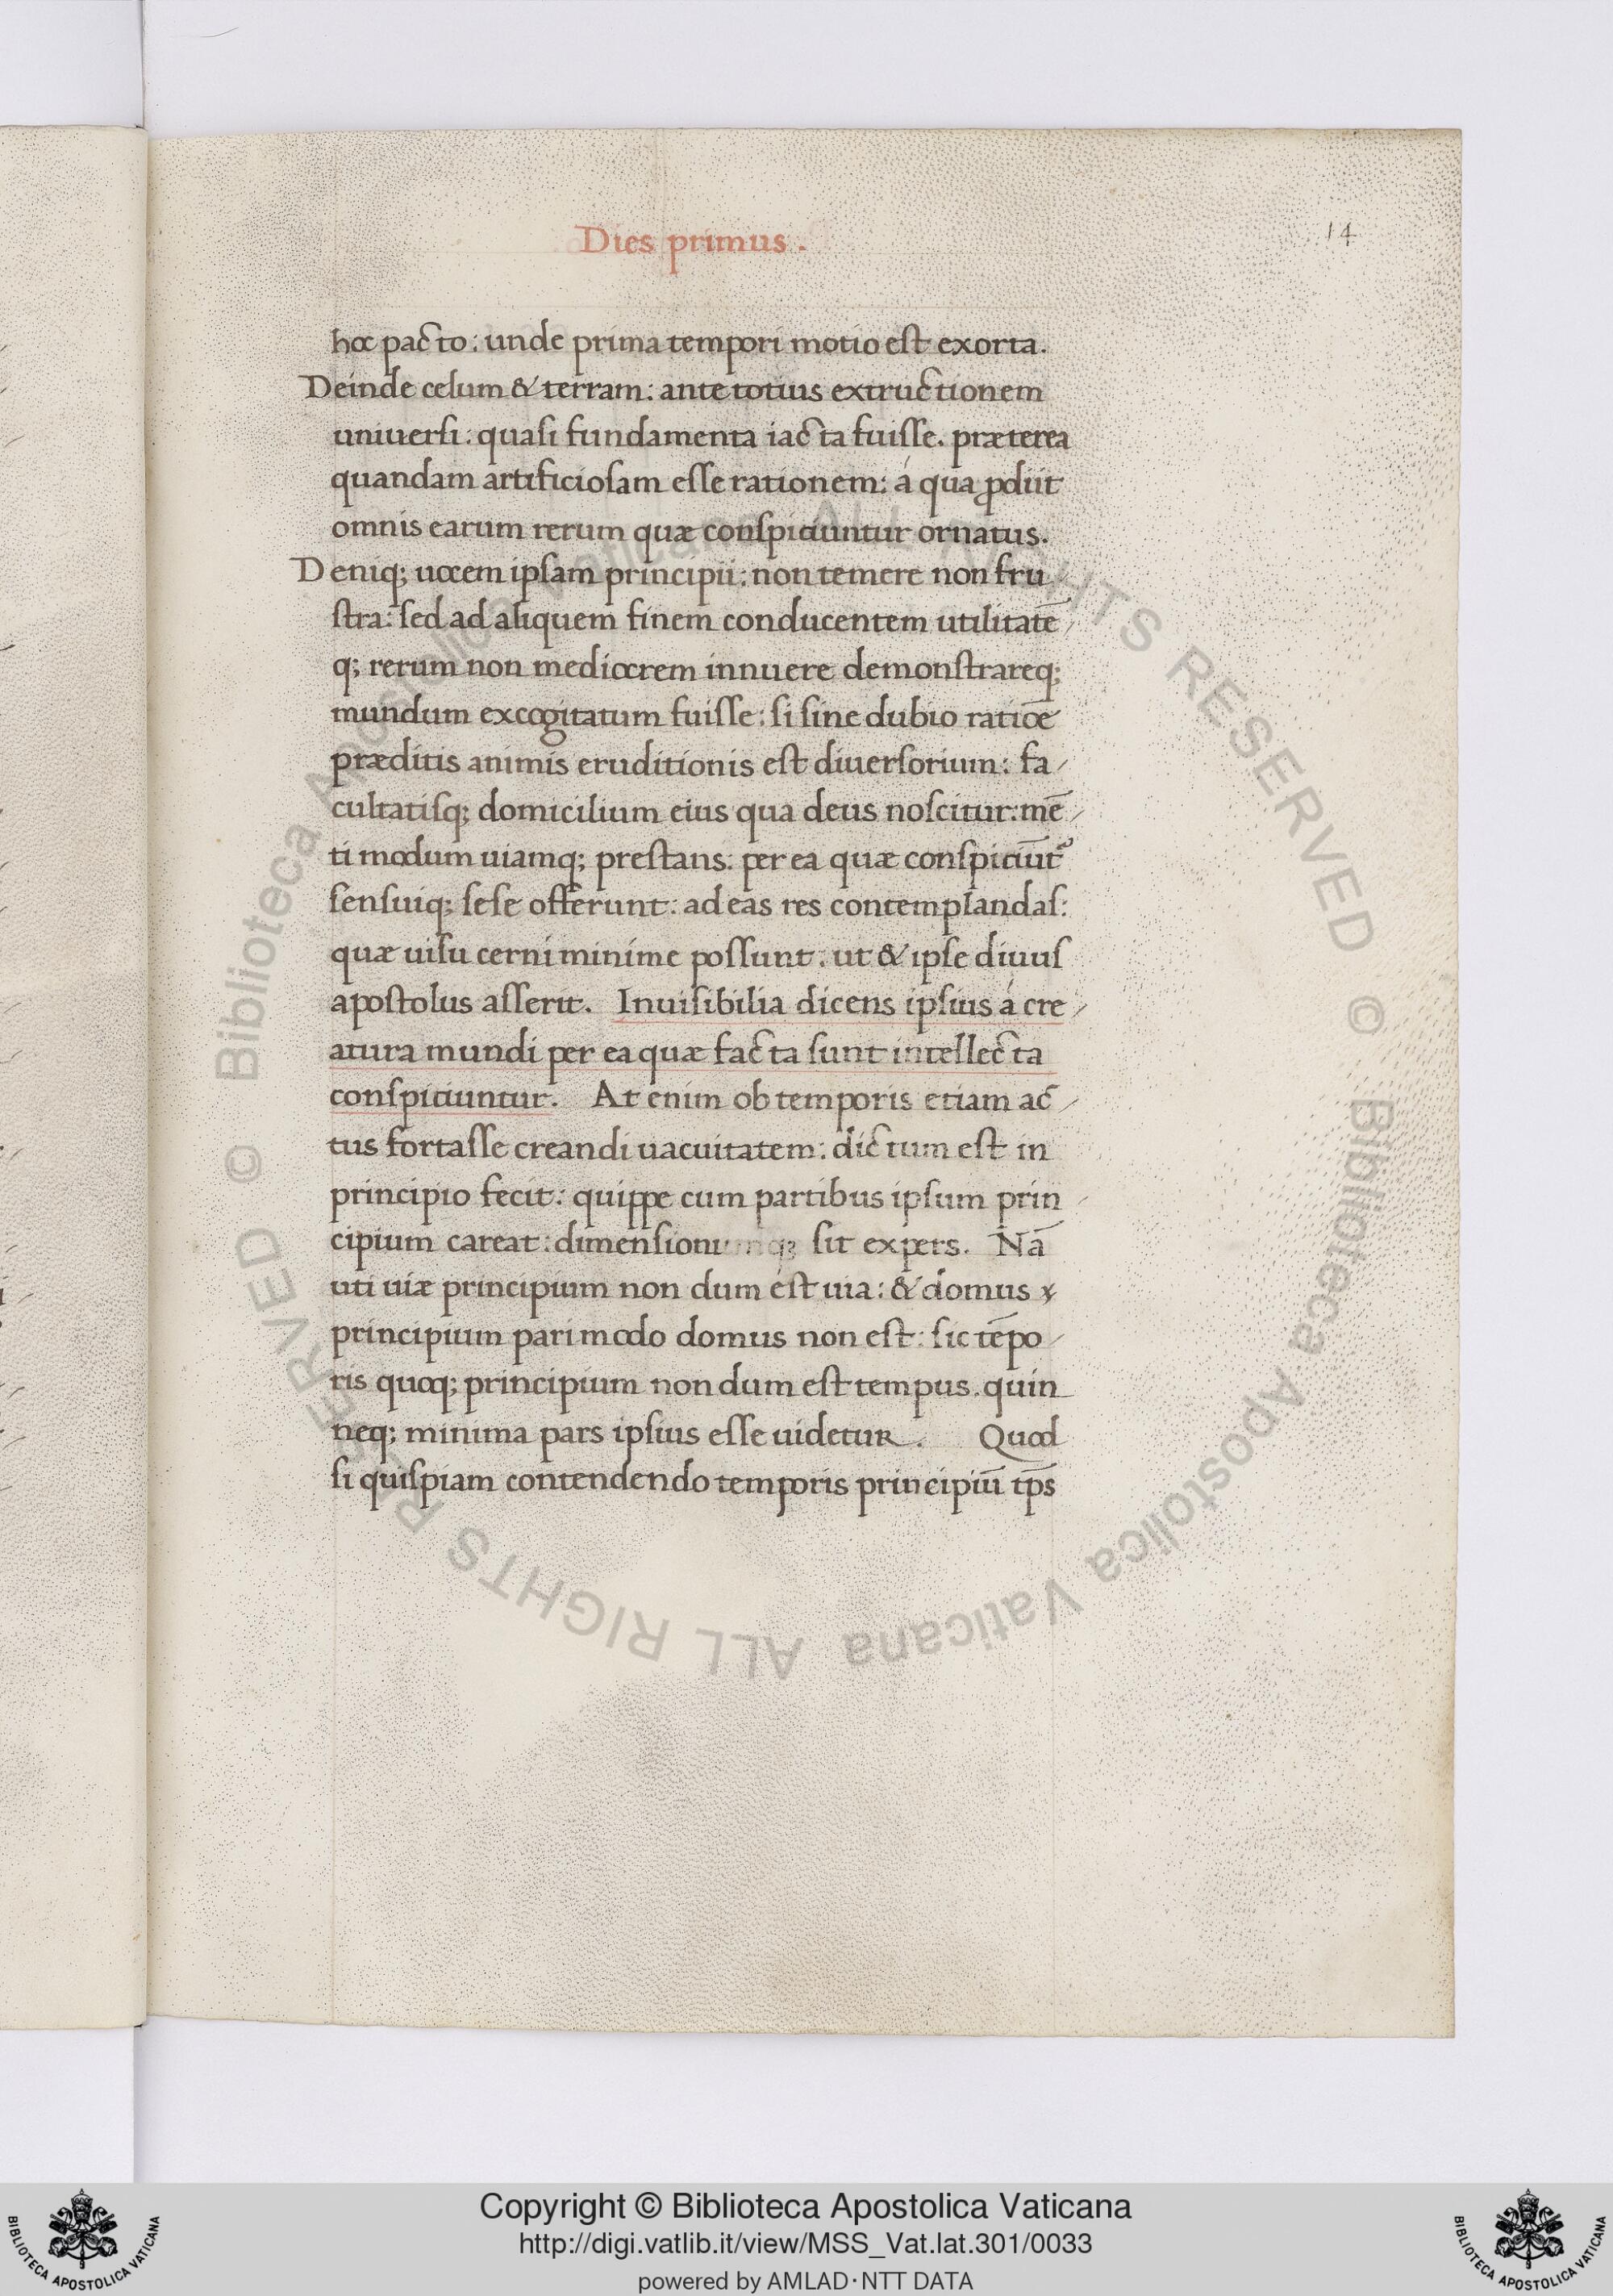 Dies primus .
14
hoc pacto : unde prima tempori motio est exorta.
Deinde celum & terram : ante totius extructionem
uniuersi : quasi fundamenta iacta fuisse. præterea
quandam artificiosam esse rationem : á qua ꝓdiit
omnis earum rerum quæ conspiciuntur ornatus.
Deniq; uocem ipsam principii : non temere non fru/
stra : sed ad aliquem finem conducentem utilitatē/
q; rerum non mediocrem innuere demonstrareq;
mundum excogitatum fuisse : si sine dubio ratiōe
præditis animis eruditionis est diuersorium : fa/
cultatisq; domicilium eius qua deus noscitur : mē/
ti modum uiamq; prestans : per ea quæ conspiciūt᷑
sensuiq; sese offerunt : ad eas res contemplandas :
quæ uisu cerni minime possunt . ut & ipse diuus
apostolus asserit. Inuisibilia dicens ipsius á cre/
atura mundi per ea quæ facta sunt intellecta
conspiciuntur. At enim ob temporis etiam ac/
tus fortasse creandi uacuitatem : dictum est in
principio fecit : quippe cum partibus ipsum prin/
cipium careat : dimensionumq; sit expers. Nā
uti uiæ principium non dum est uia : & domus
principium pari modo domus non est : sic tēpo/
ris quoq; principium non dum est tempus . quin
neq; minima pars ipsius esse uidetur . Quod
si quispiam contendendo temporis principiū tp̄s
Copyright © Biblioteca Apostolica Vaticana
http://digi.vatlib.it/view/MSS_Vat.lat.301/0033
powered by AMLAD·NTT DATA
BIBLIOTECA APOSTOLICA VATICANA
BIBLIOTECA APOSTOLICA VATICANA
© Biblioteca Apostolica Vaticana ALL RIGHTS RESERVED © Biblioteca Apostolica Vaticana ALL RIGHTS RESERVED